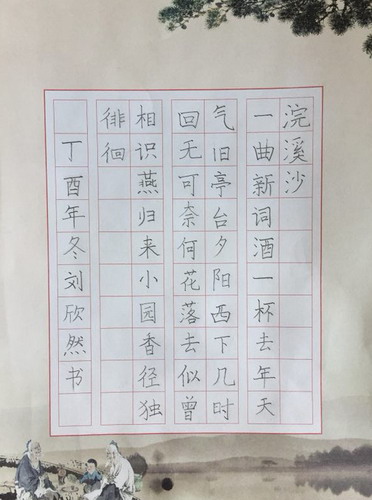 浣溪沙
一曲新词酒一杯去年天
气旧亭台夕阳西下几时
回无可奈何花落去似曾
相识燕归来小园香径独
徘徊
丁酉年冬刘欣然书